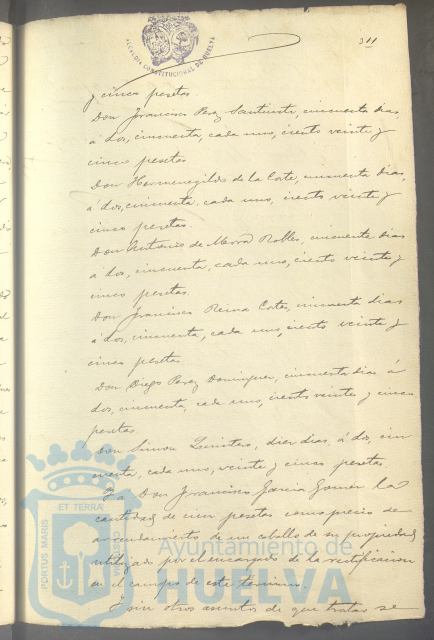 ALCALDIA CONSTITUCIONAL DE HUELVA
311
y cinco pesetas.
Don Francisco Perez Santiesti, cincuenta dias,
á dos, cincuenta, cada uno, ciento veinte y
cinco pesetas
Don Hermenegildo de la Corte, cincuenta dias,
á dos, cincuenta, cada uno, ciento veinte y
cinco pesetas.
Don Antonio de Mora Robles, cincuenta dias
á dos, cincuenta, cada uno, ciento veinte y
cinco pesetas.
Don Francisco Reina Cortes, cincuenta dias
á dos, cincuenta, cada uno, ciento veinte y
cinco pesetas
Don Diego Perez Dominguez, cincuenta dias á
dos, cincuenta, cada uno, ciento veinte y cinco
pesetas.
Don Simon, diez dias, á dos, cin
cuenta, cada uno, veinte y cinco pesetas
Y a Don Francisco Garcia Gomez la
cantidad de cien pesetas como precio de
arrendamiento de un caballo de su propiedad
utilizado por el encargado de la rectificacion
en el campo de este termino.
Y sin otros asuntos de que tratar se
PORTUS MARIS ET TERRAE
Ayuntamiento de
HUELVA